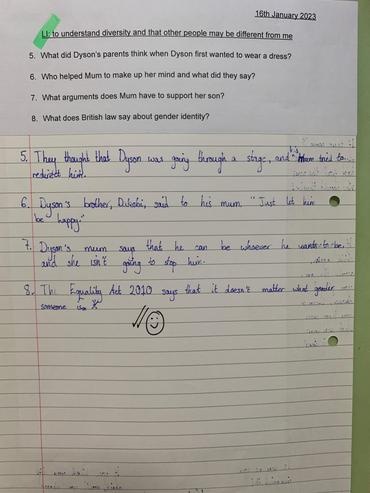 16th January 2023
LI: to understand diversity and that other people may be different from me
5. What did Dyson's parents think when Dyson first wanted to wear a dress?
6. Who helped Mum to make up her mind and what did they say?
7. What arguments does Mum have to support her son?
8. What does British law say about gender identity?
5. They thought that Dyson was going through a stage, and his Mum tried to
redirect him.
6. Dyson's brother, said to his mum "Just let him
be happy."
7. Dyson's mum says that he can be whoever he wants to be,
and she isn't going to stop him.
8. The Equality Act 2010 says that it doesn't matter what gender
someone is